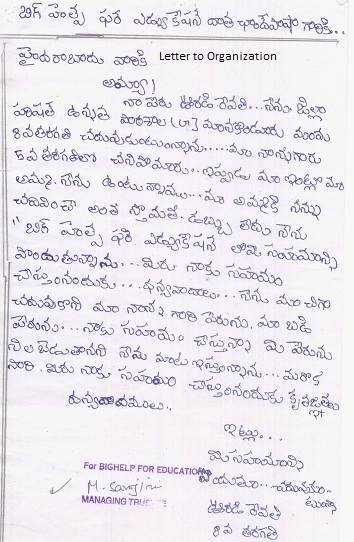 బిగ్ హెల్ప్ ఫర్ ఎడ్యుకేషన్ దాత చాంద్‌పాషా గారికి..
హైదరాబాదు వారికి
Letter to Organization
అమ్మా!
నా పేరు ఊరడి రేవతి... నేను జిల్లా
పరిషత్ ఉన్నత పాఠశాల మానకొండూరు నందు
8వ తరగతి చదువుతున్నాను..... మా నాన్నగారు
5వ తరగతిలో చనిపోయారు... ఇప్పుడు మా ఇంట్లో మా
అమ్మ, నేను ఉంటున్నాము... మా అమ్మకి నన్ను
చదివించే అంత స్తోమత, డబ్బు లేదు నేను
"బిగ్ హెల్ప్ ఫర్ ఎడ్యుకేషన్ సహాయాన్ని
పొందుతున్నాను... మీరు నాకు సహాయం
చేస్తున్నందుకు... ధన్యవాదాలు... నేను బాగా
చదువుకొని మా నాన్న గారి పేరును, మా బడి
పేరును... నాకు సహాయం చేస్తున్న మీ పేరును
నిలబెడుతానని నేను మాట ఇస్తున్నాను... మరొక
సారి మీరు నాకు సహాయం చేస్తున్నందుకు కృతజ్ఞతలు
ధన్యవాదములు..
ఇట్లు...
మీ సహాయాన్ని
చదువుకుంటున్న
ఊరడి రేవతి
8వ తరగతి
For BIGHELP FOR EDUCATION
MANAGING TRUSTEE